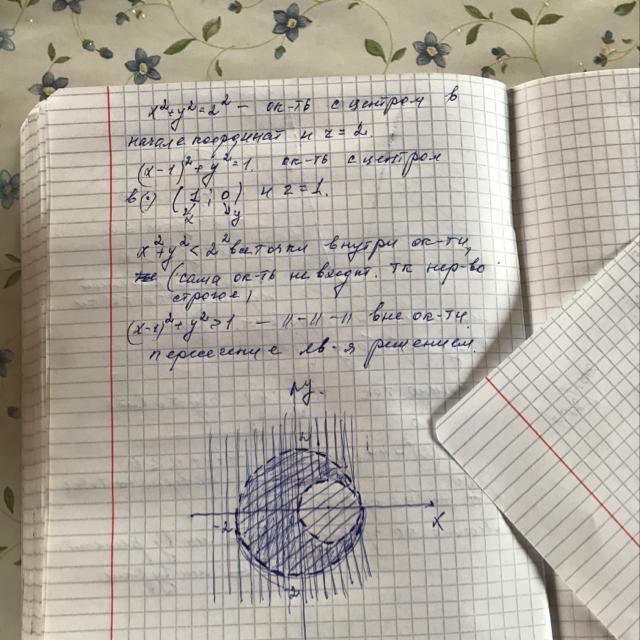 x²+y²=2² – ок-ть с центром в
начале координат и r=2
(x-1)²+y²=1. ок-ть с центром
в (·) (1; 0) и r=1.
x y
x²+y²<2² все точки внутри ок-ти,
(сама ок-ть не входит. тк нер-во
строгое)
(x-1)²+y²>1 – 11-11-11 вне ок-ти.
Пересечение яв-я решением.
y
2
-2
x
2